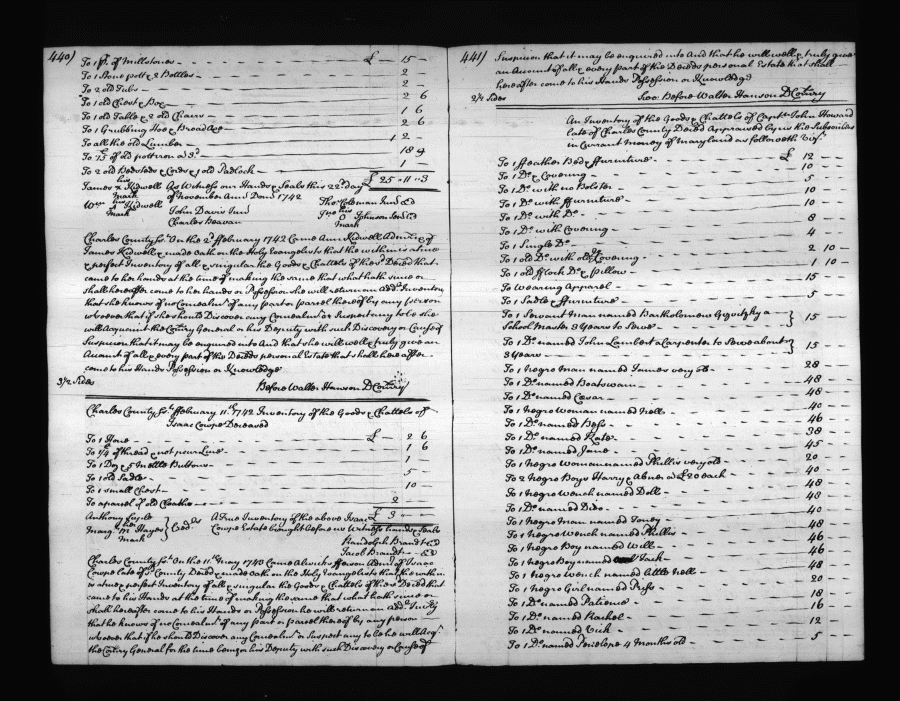 440)
To 1 pr. of Millstones £ 15 -
To 1 Stone pott & 2 Bottles 2 -
To 2 old Tubs 2 -
To 1 old Chest & Box 2 6
To 1 old Table & 2 old Chairs 1 6
To 1 Grubbing Hoe & Broad Axe 2 6
To all the old Lumber 1 2
To 75 lb of old pott iron a 3d. 18 9
To 2 old Bedsteds & Cords & 1 old Padlock 1 -
£ 25 " 11 " 3
James his x mark Kidwell As Witness our Hands & Seals this 22d day
of November Ann Dom 1742
Wm his mark Kidwell John Davis Junr Thos Coleman Junr
Charles Beavan Johnson Senr
mark
Charles County Sct. On the 2d ffebruary 1742 Came Ann Kidwell Admx of
James Kidwell & made Oath on the Holy Evangelists that the within is a true
& perfect Inventory of all & singular the Goods & Chattels of the sd Deced that
came to her hands at the time of making the same that what hath since or
shall hereafter come to her hands or Possession she will return an Addl Inventory
that she knows of no Concealmt of any part or parcel thereof by any person
whoever that if she should Discover any Concealmt or Suspect any to be she
will Acquaint the Comry General or his Deputy with such Discovery or Cause of
Suspicion that it may be enquired into And that she will well & truly give an
Account of all & every part of the Deceds personal Estate that shall hereafter
come to his Hands Possession or Knowledge
3/2 Sides Before Walter Hanson D Comry
Charles County Sct. ffebruary 11th 1742 Inventory of the Goods & Chattels of
Isaac Cowpe Deceased
To 1 Hone £ - 2 6
To 1/4 lb of thread & not pour Line 1 6
To 1 Doz & 5 Mettle Buttons 1 -
To 1 old Sadle 5 -
To 1 small Chest 10 -
To a parcel of old Cloaths 2
£ 3 " -
A True Inventory of the above Isaac
Marg. her M mark Hayes Creds Cowpe Estate brought before us Witness hands & Seals
Randolph Brandt
Jacob Brandt
Charles County Sct. On the 11th May 1743 Came Admr of Isaac
Cowpe late of sd County Deced & made oath on the Holy Evangelists that the within
is a true & perfect Inventory of all & singular the Goods & Chattels of the sd Deced that
came to his Hands at the time of making the same that what hath since or
shall hereafter come to his Hands or Possession he will return an Addl Invty
that he knows of no Concealmt of any part or parcel thereof by any person
whoever that if he should Discover any Concealmt or Suspect any to be he will Acqt
the Comry General for the time being or his Deputy with such Discovery or Cause of
441)
Suspicion that it may be enquired into And that he will well & truly give
an Account of all & every part of the Deceds personal Estate that shall
hereafter come to his Hands Possession or Knowledge
2/1 Sides Before Walter Hanson D Comry
An Inventory of the Goods & Chattels of Captn John Howard
late of Charles County Deced Appraised by us the Subscribers
in Currant Money of Maryland as followeth Vizt
To 1 ffeather Bed & ffurniture £ 12 - -
To 1 Do & Covering 10 - -
To 1 Do with no Bolster 5 - -
To 1 Do with ffurniture 10 - -
To 1 Do with Do 10 - -
To 1 Do with Covering 8 - -
To 1 Single Do 4 - -
To 1 old Do with old Covering 2 10 -
To 1 old fflock Do & pillow 1 10 -
To Wearing Apparel 15 - -
To 1 Sadle & ffurniture 5 - -
To 1 Servant Man named Bartholomew a
School Master 3 Years to Serve } 15 - -
To 1 Do named John Lambert a Carpenter to Serve about
3 Years } 15 - -
To 1 Negro Man named James very old 28 - -
To 1 Do named Boatswain 48 - -
To 1 Do named Cæsar 48 - -
To 1 Negro Woman named Nell 40 - -
To 1 Do named Bess 46 - -
To 1 Do named Kate 38 - -
To 1 Do named Jane 45 - -
To 1 Negro Woman named Phillis very old 20 - -
To 2 Negro Boys Harry & Abner a £20 each 40 - -
To 1 Negro Wench named Doll 48 - -
To 1 Do named Dido 40 - -
To 1 Negro Man named Toney 48 - -
To 1 Negro Wench named Phillis 46 - -
To 1 Negro Boy named Will 46 - -
To 1 Negro Boy named Jack 48 - -
To 1 Negro Wench named little Nell 20 - -
To 1 Negro Girl named Priss 18 - -
To 1 Do named Patience 16 - -
To 1 Do named Rachel 12 - -
To 1 Do named
To 1 Do named Penelope 4 Months old 5 - -